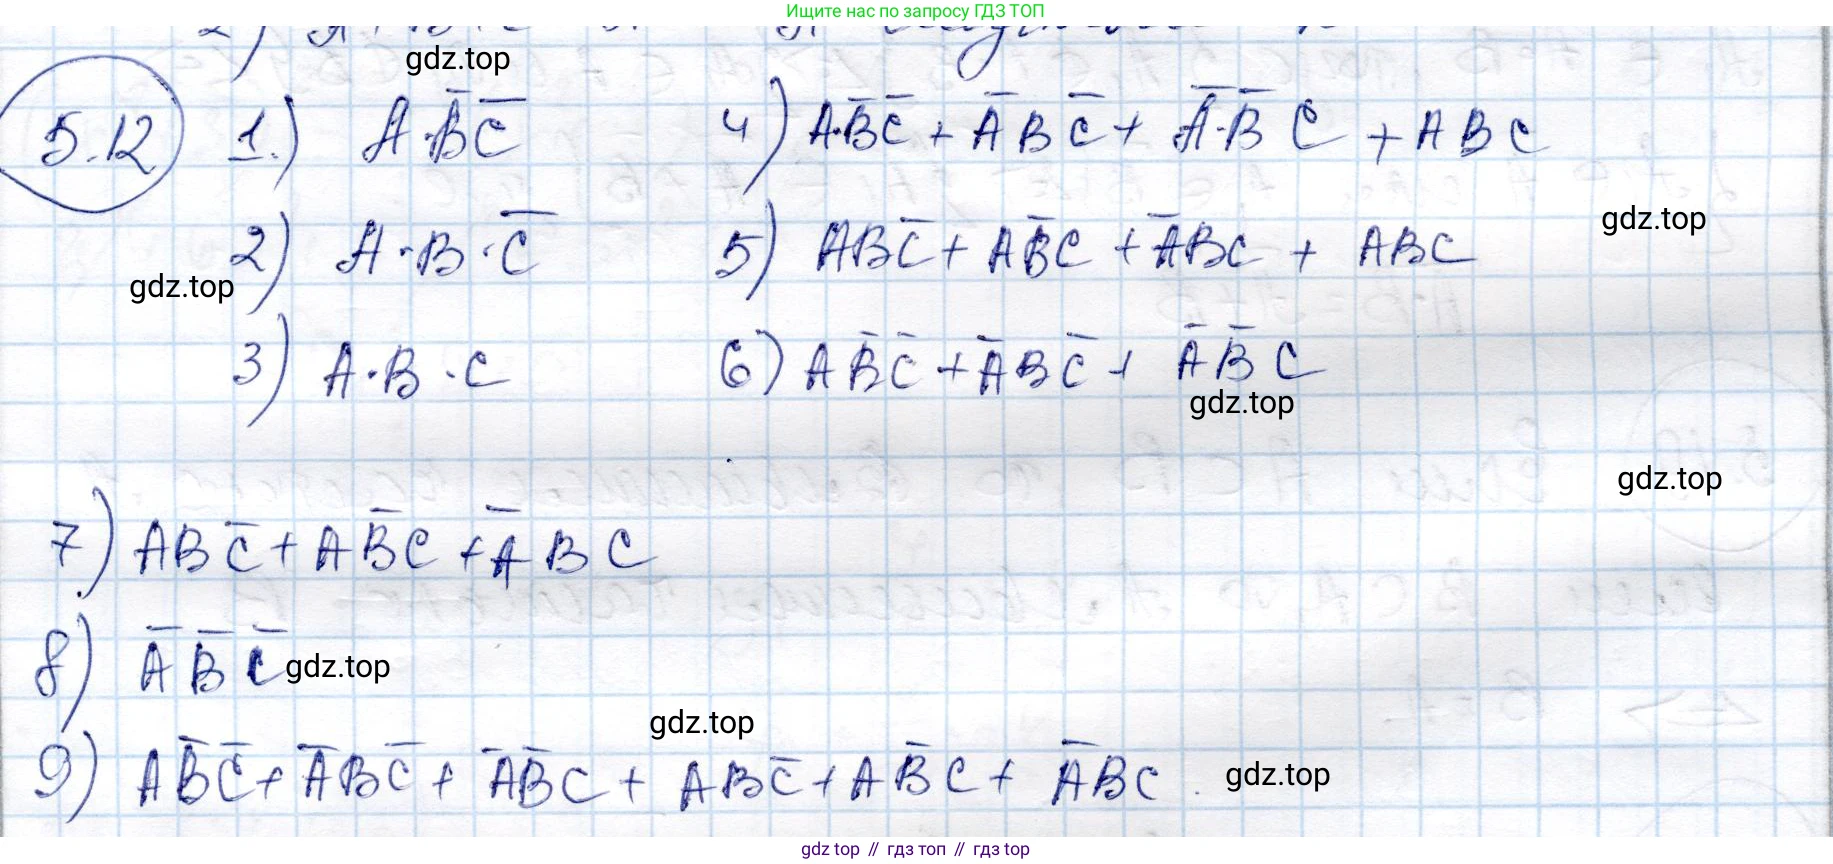 Ищите нас по запросу ГДЗ ТОП
gdz.top
5.12 1.) A·B̅C̅
4) A·B̅C̅ + A̅BC̅ + A̅·B̅C + ABC
gdz.top
2) A·B·C̅
5) ABC̅ + AB̅C + A̅BC + ABC
gdz.top
3) A·B·C
6) AB̅C̅ + A̅BC̅ + A̅B̅C
gdz.top
gdz.top
7.) ABC̅ + AB̅C + A̅BC
8) A̅B̅C̅
gdz.top
gdz.top
9) AB̅C̅ + A̅BC̅ + A̅B̅C + ABC̅ + AB̅C + A̅BC.
gdz.top
gdz top // гдз топ // гдз top